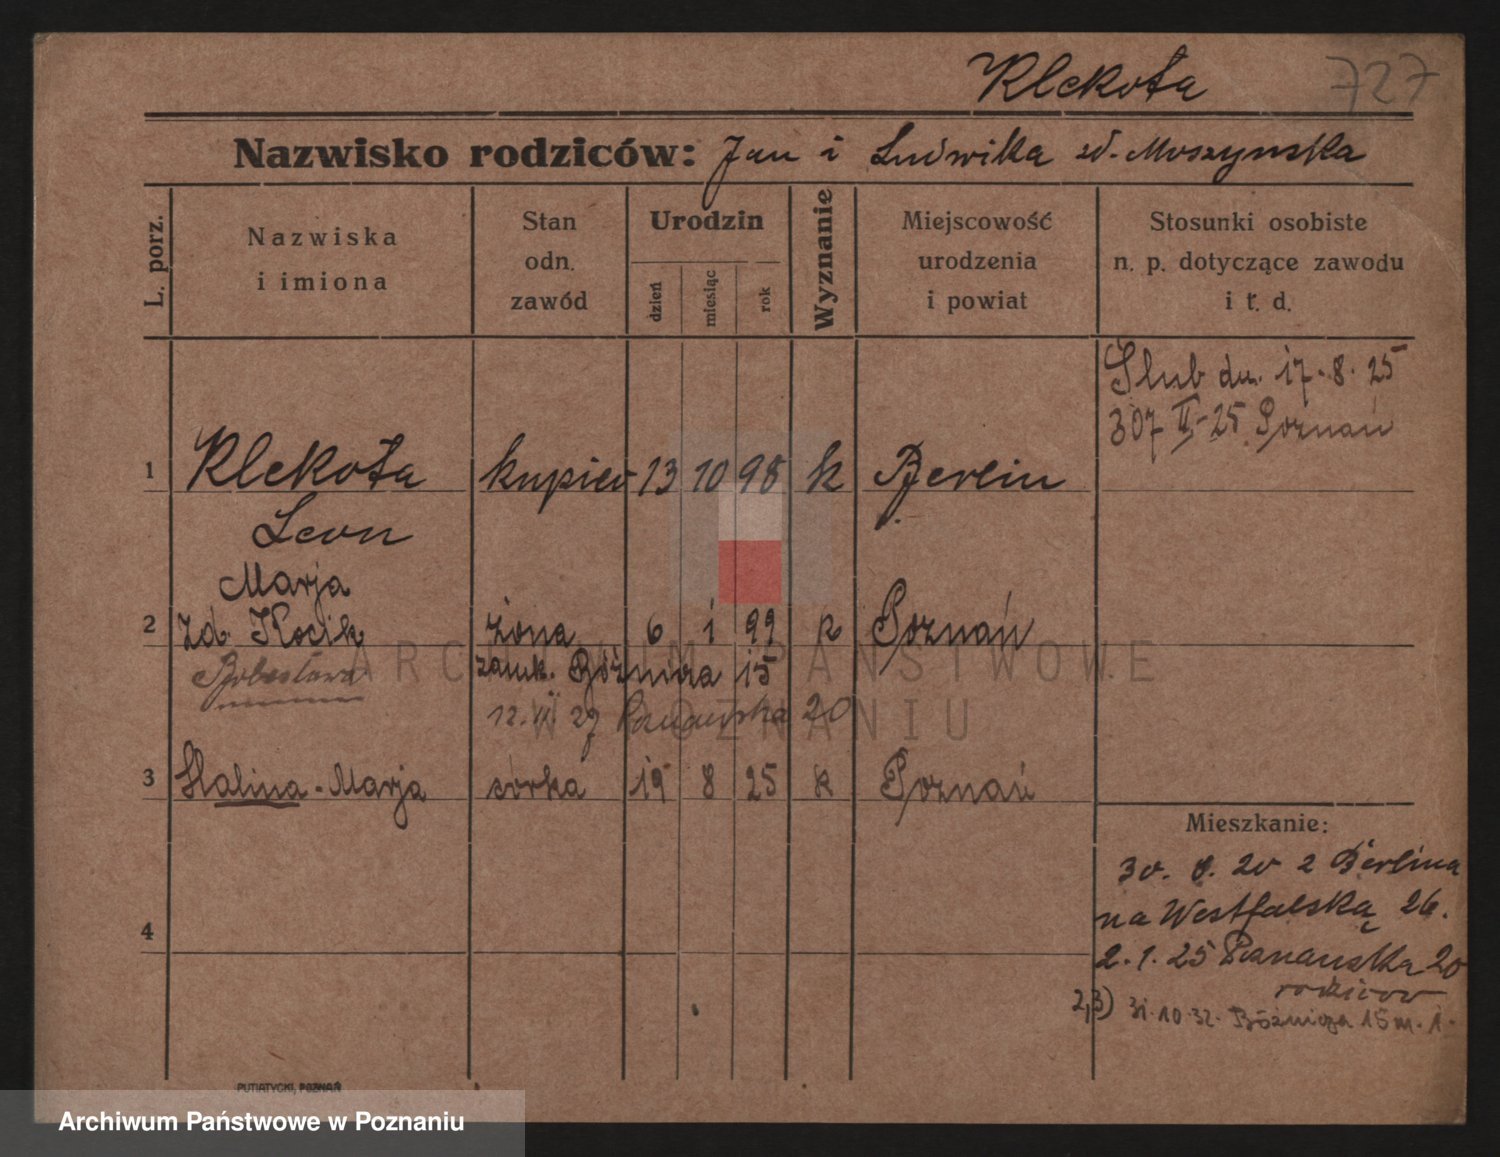 Klekota 727
Nazwisko rodziców: Jan i Ludwika zd. Moszynska
L. porz.
Nazwiska
i imiona
Stan
odn.
zawód
Urodzin
dzień
miesiąc
rok
Wyznanie
Miejscowość
urodzenia
i powiat
Stosunki osobiste
n. p. dotyczące zawodu
i t. d.
Ślub dn. 17.8.25
307 II-25 Poznań
1 Klekota kupiec 13 10 98 k Berlin
Leon
Marja
2 zd. Kocik żona 6 1 99 k Poznań
zamk. Bóżnicza 15
12. 27 20
3 Halina-Marja córka 19 8 25 k Poznań
Mieszkanie:
30. 20 z Berlina
na Westfalską 26.
4
2.1.25 Poznańska 20
rodziców
2,3) 31.10.32. Bóżnicza 15 m. 1.
PUTIATYCKI, POZNAŃ
ARCHIWUM PAŃSTWOWE
W POZNANIU
Archiwum Państwowe w Poznaniu